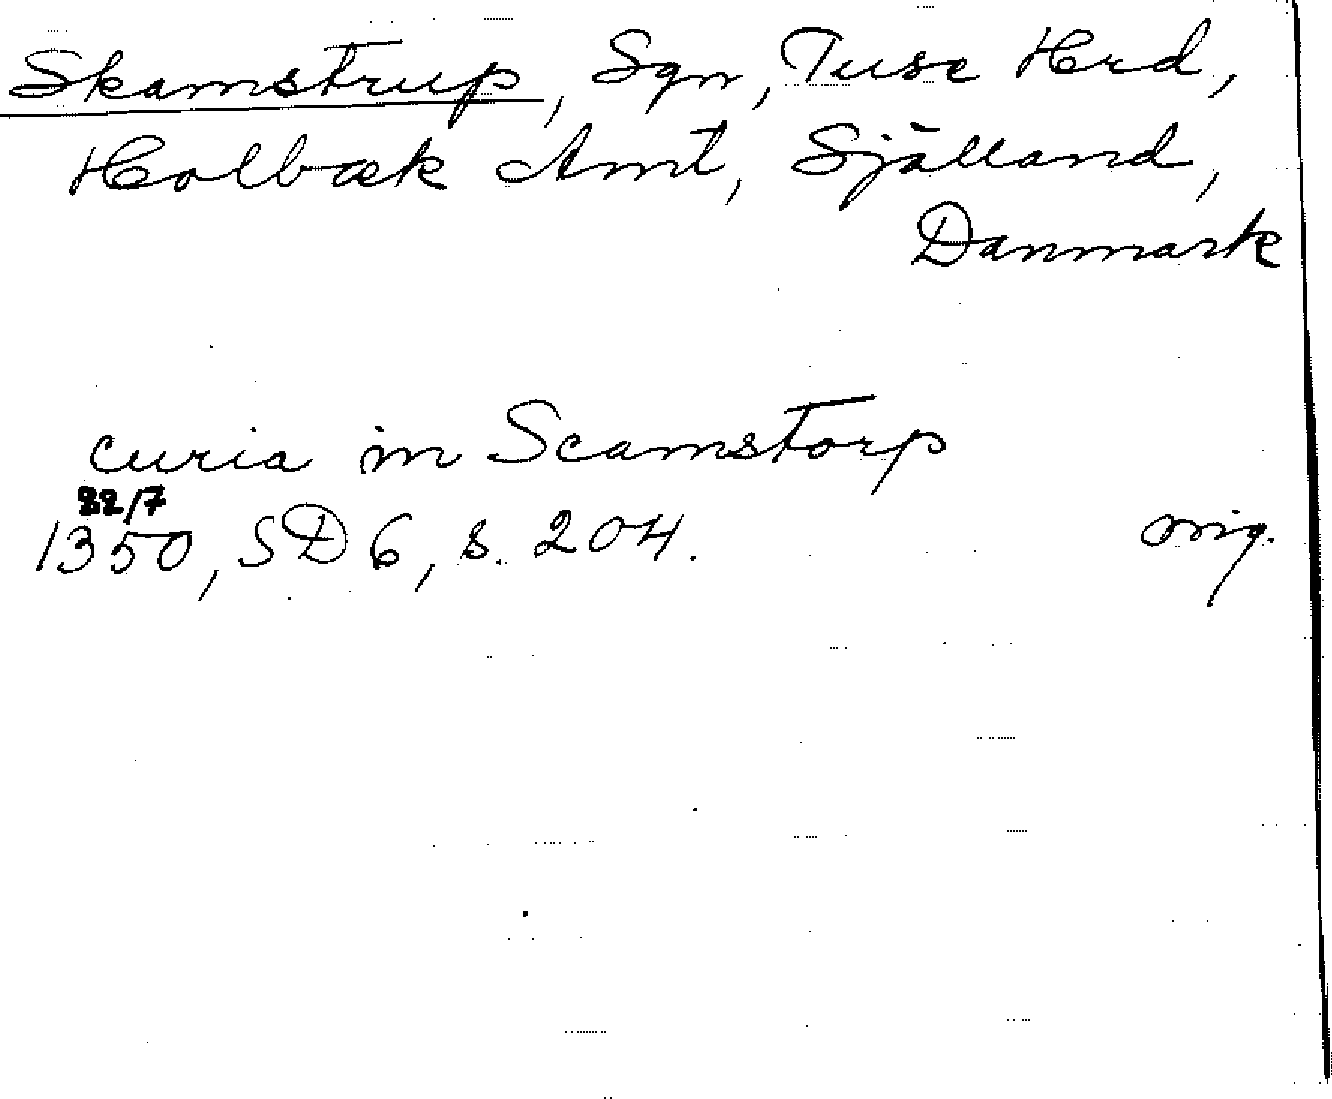 Skamstrup, Sgn, Tuse Hrd,
Holbæk Amt, Själland,
Danmark
curia in Scamstorp
22/7
1350, SD 6, s. 204. orig.